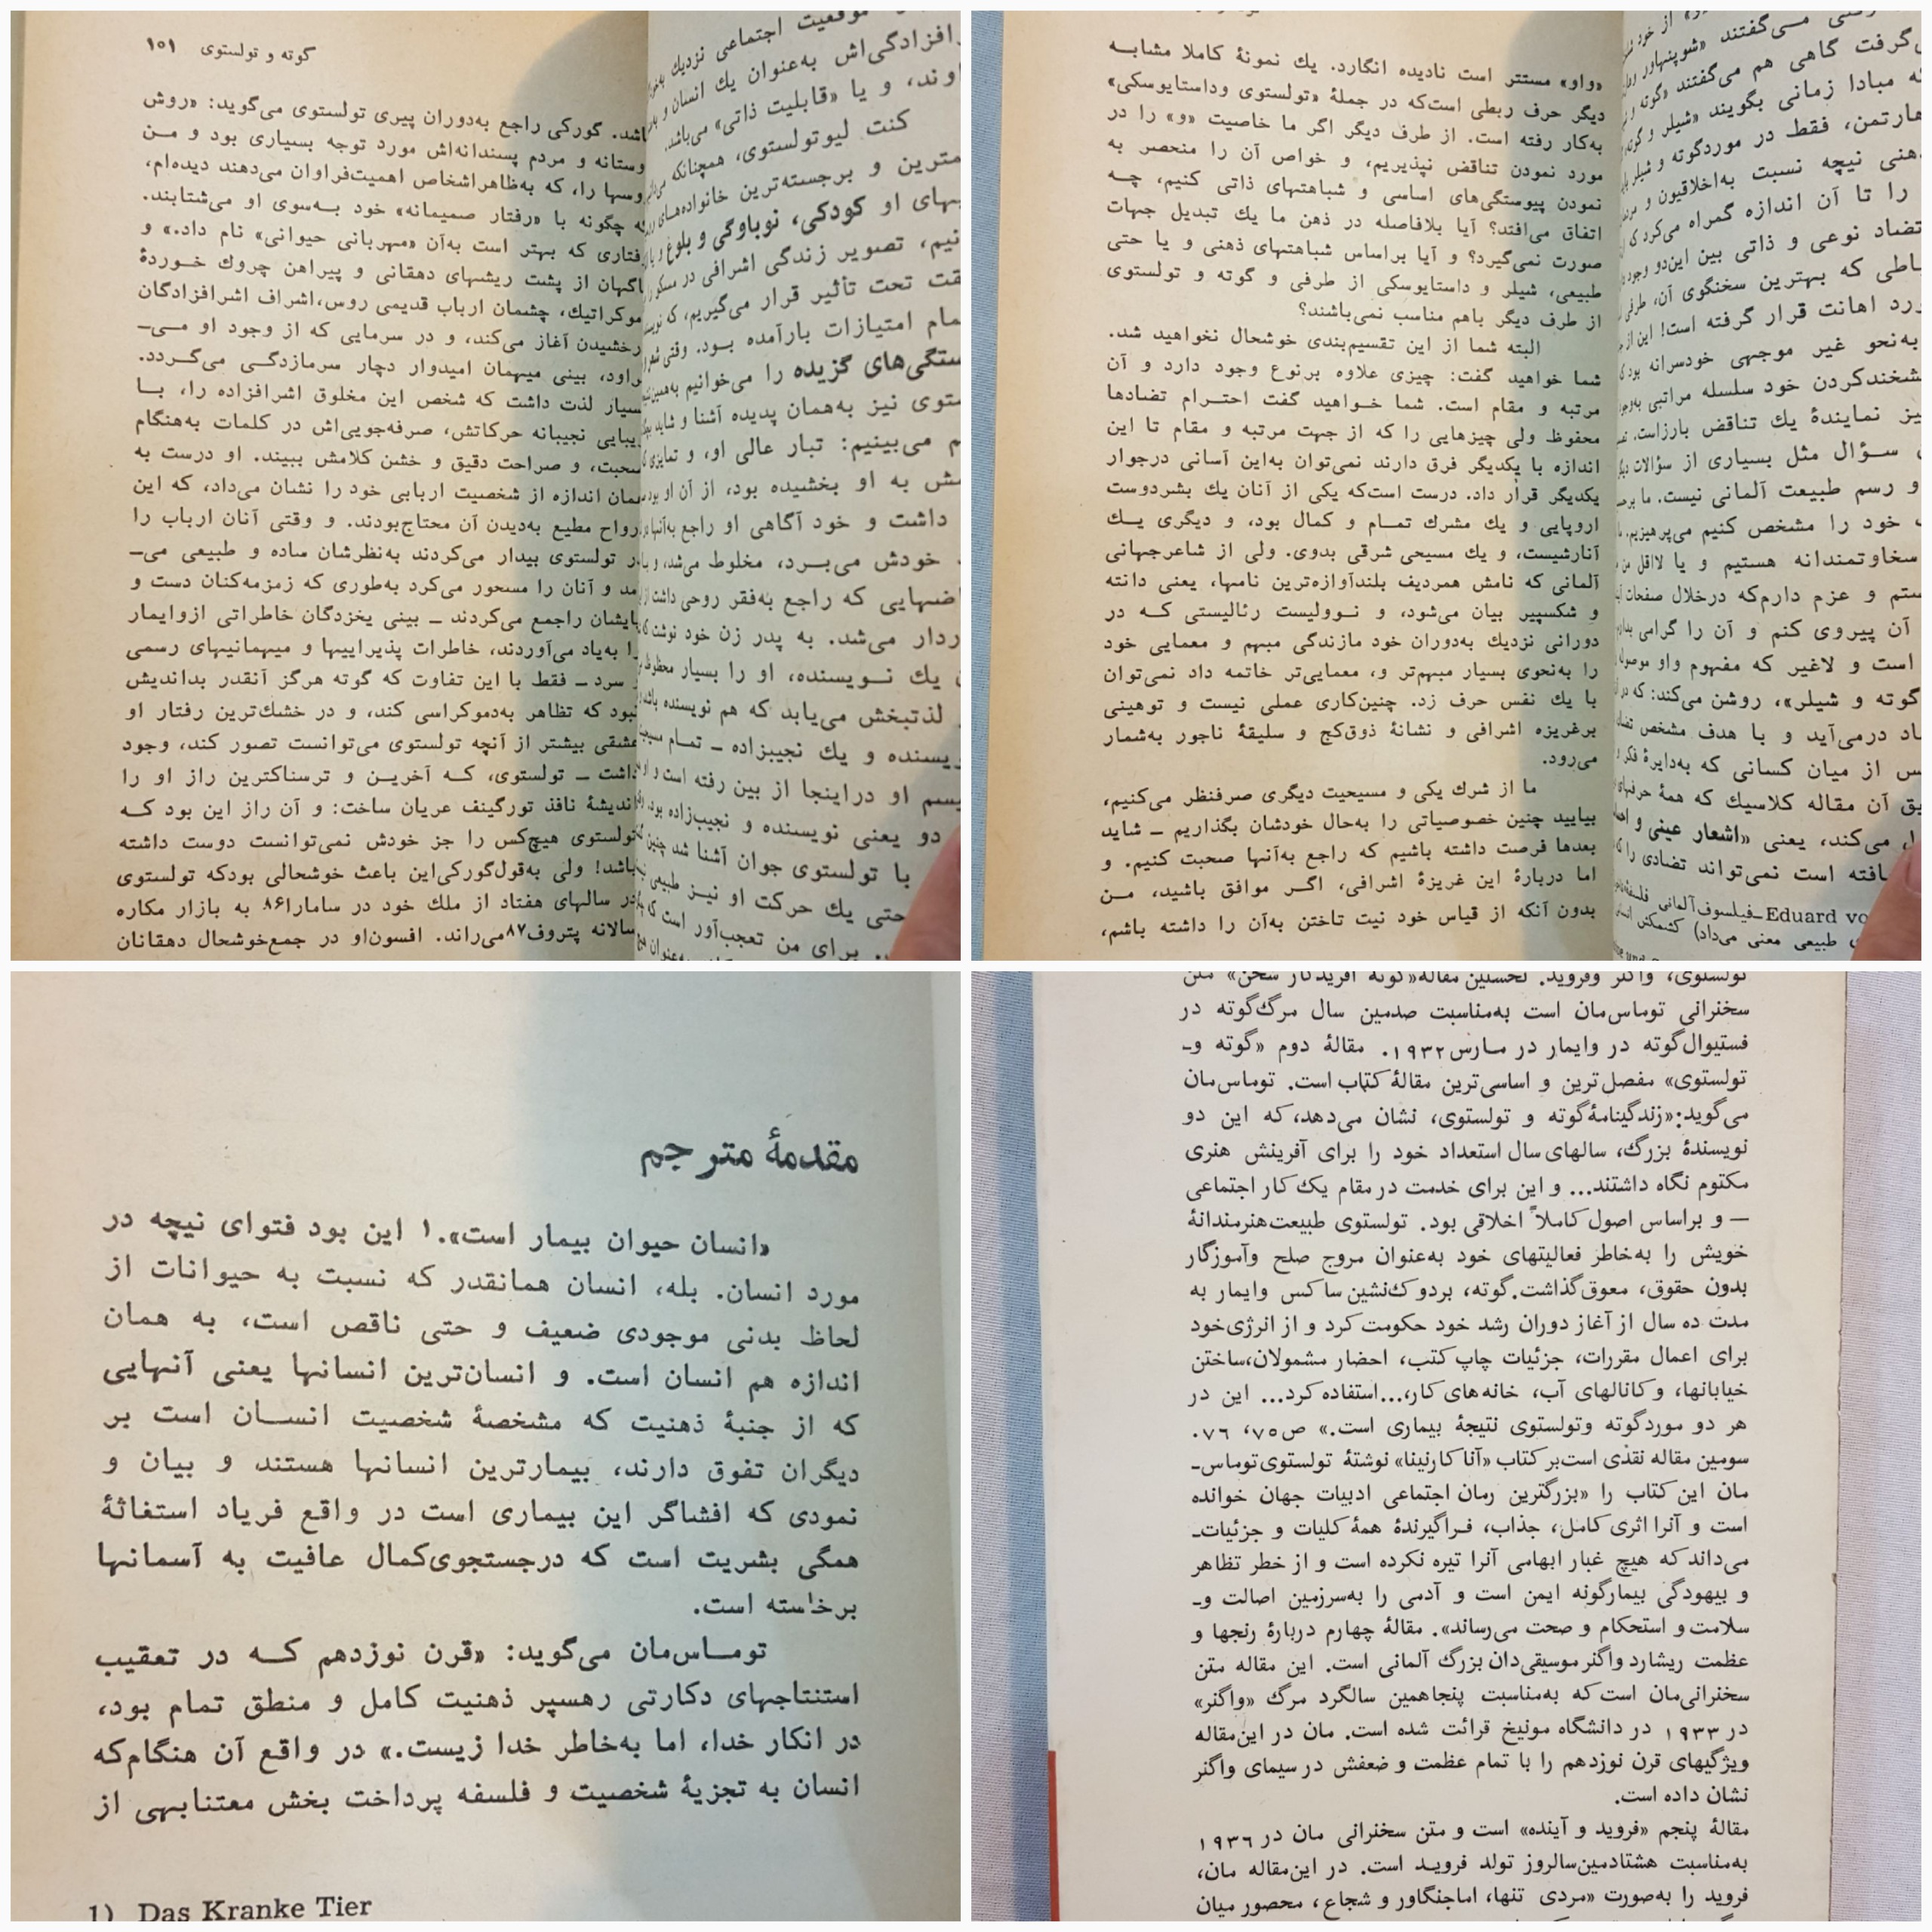 گوته و تولستوی ۱۰۱
باشد. گورکی راجع به‌دوران پیری تولستوی می‌گوید: «روش
دوستانه و مردم پسندانه‌اش مورد توجه بسیاری بود و مـن
روسها را، که به‌ظاهر اشخاص اهمیت‌فراوان می‌دهند دیده‌ام،
که چگونه با «رفتار صمیمانه» خود بـه‌سوی او می‌شتابند.
رفتاری که بهتر است به‌آن «مهربانی حیوانی» نام داد.» و
ناگهان از پشت ریشهای دهقانی و پیراهن چروك خـوردهٔ
دموکراتیك، چشمان ارباب قدیمی روس،اشراف اشرافزادگان
درخشیدن آغاز می‌کند، و در سرمایی که از وجود او مـی‌ـ
تراود، بینی میهمان امیدوار دچار سرمازدگـی می‌گـردد.
بسیار لذت داشت که شخص این مخلوق اشرافزاده را، بـا
زیبایی نجیبانه حرکاتش، صرفه‌جویی‌اش در کلمات به‌هنگام
صحبت، و صراحت دقیق و خشن کلامش ببیند. او درست به
همان اندازه از شخصیت اربابی خود را نشان می‌داد، که این
ارواح مطیع به‌دیدن آن محتاج‌بودند. و وقتی آنان ارباب را
در تولستوی بیدار می‌کردند به‌نظرشان ساده و طبیعی می‌ـ
آمد و آنان را مسحور می‌کرد به‌طوری که زمزمه‌کنان دست و
پایشان راجمع می‌کردند ـ بینی یخزدگان خاطراتی ازوایمار
را به‌یاد می‌آوردند، خاطرات پذیراییها و میهمانیهای رسمی
و سرد ـ فقط با این تفاوت که گوته هرگز آنقدر بداندیش
نبود که تظاهر به‌دموکراسی کند، و در خشك‌ترین رفتار او
عشقی بیشتر از آنچه تولستوی می‌توانست تصور کند، وجود
داشت ـ تولستوی، کـه آخریـن و ترسناکترین راز او را
اندیشهٔ نافذ تورگینف عریان ساخت: و آن راز این بود کـه
تولستوی هیچ‌کس را جز خودش نمی‌توانست دوست داشته
باشد! ولی به‌قول‌گورکی‌این باعث خوشحالی بودکه تولستوی
در سالهای هفتاد از ملك خود در سامارا۸۶ به بازار مکاره
سالانه پتروف۸۷می‌راند. افسون‌او در جمع‌خوشحال دهقانان
موقعیت اجتماعی نزدیك
افزادگی‌اش به‌عنوان یك انسان و
اوند، و یا «قابلیت ذاتی» می‌باشد.
کنت لیوتولستوی، همچنانکه
مترین و برجسته‌ترین خانواده‌های
بهای او کودکی، نوباوگی و بلوغ
نیم، تصویر زندگی اشرافی در مسکو
قت تحت تأثیر قرار می‌گیریم، که
مام امتیازات بارآمده بـود. وقتی
ستگی‌های گزیده را می‌خوانیم
ستوی نیز به‌همان پدیده آشنا و شاید
م می‌بینیم: تبار عالی او، و تمایزی
مش به او بخشیده بود، از آن او
داشت و خود آگاهی او راجع
خودش می‌بـرد، مخلوط می‌شد،
اضهایی که راجع به‌فقر روحی
ردار می‌شد. به پدر زن خود نوشت
ن یك نـویسنده، او را بسیار
لذتبخش می‌یابد که هم نویسنده
یسنده و یك نجیبزاده ـ تمـام
یسم او دراینجا از بین رفته است و
دو یعنی نویسنده و نجیب‌زاده بود.
با تولستوی جوان آشنا شد چنین
حتی یك حرکت او نیـز طبیعی
برای من تعجب‌آور است که
«واو» مستتر است نادیده انگارد. یك نمونهٔ کاملا مشابـه
دیگر حرف ربطی است‌که در جملهٔ «تولستوی وداستایوسکی»
به‌کار رفته است. از طرف دیگر اگر ما خاصیت «و» را در
مورد نمودن تناقض نپذیریم، و خواص آن را منحصر به
نمودن پیوستگی‌های اساسی و شباهتهای ذاتی کنیم، چـه
اتفاق می‌افتد؟ آیا بلافاصله در ذهن ما یك تبدیل جهات
صورت نمی‌گیرد؟ و آیا براساس شباهتهای ذهنی و یا حتی
طبیعی، شیلر و داستایوسکی از طرفی و گوته و تولستوی
از طرف دیگر باهم مناسب نمی‌باشند؟
البته شما از این تقسیم‌بندی خوشحال نخواهید شد.
شما خواهید گفت: چیزی علاوه برنوع وجود دارد و آن
مرتبه و مقام است. شما خـواهید گفت احتـرام تضادها
محفوظ ولی چیزهایی را که از جهت مرتبه و مقام تا این
اندازه با یکدیگر فرق دارند نمی‌توان به‌این آسانی درجوار
یکدیگر قرار داد. درست است‌که یکی از آنان یك بشردوست
اروپایی و یك مشرك تمـام و کمال بود، و دیگری یـك
آنارشیست، و یك مسیحی شرقی بدوی. ولی از شاعرجهانی
آلمانی که نامش همردیف بلندآوازه‌ترین نامها، یعنی دانته
و شکسپیر بیان می‌شود، و نـوولیست رئالیستی کـه در
دورانی نزدیك به‌دوران خود مازندگی مبهم و معمایی خود
را به‌نحوی بسیار مبهم‌تر و، معمایی‌تر خاتمه داد نمی‌توان
با یك نفس حرف زد. چنین‌کاری عملی نیست و توهینی
برغریزه اشرافی و نشانهٔ ذوق‌کج و سلیقهٔ ناجور به‌شمار
می‌رود.
ما از شرك یکی و مسیحیت دیگری صرفنظر می‌کنیم،
بیایید چنین خصوصیاتی را به‌حال خودشان بگذاریم ـ شاید
بعدها فرصت داشته باشیم که راجع به‌آنها صحبت کنیم. و
اما دربارهٔ این غریزهٔ اشرافی، اگـر موافق باشید، مـن
بدون آنکه از قیاس خود نیت تاختن به‌آن را داشته باشم،
می‌گفتند «شوپنهاور
گرفت گاهی هم می‌گفتند «گوته و
مبادا زمانی بگویند «شیلر و گوته
هارتمن، فقط در موردگوته و شیلر
هنی نیچه نسبت به‌اخلاقیون و
را تا آن اندازه گمراه می‌کرد که
تضاد نوعی و ذاتی بین این‌دو وجود
اطی که بهترین سخنگوی آن، طرفی
رد اهانت قرار گرفته است! این از
به‌نحو غیر موجهی خودسرانه بود
شخندکردن خود سلسله مراتبی
یز نمایندهٔ یك تناقض بارزاست.
سـؤال مثل بسیاری از سؤالات
و رسم طبیعت آلمانی نیست. ما
خود را مشخص کنیم می‌پرهیزیم.
سخاوتمندانه هستیم و یا لااقل من
ستم و عزم دارم‌که درخلال صفحات
آن پیروی کنم و آن را گرامی
است و لاغیر که مفهوم واو
گوته و شیلر»، روشن می‌کند: که
اد درمی‌آید و با هدف مشخص
س از میان کسانی که به‌دایرهٔ فکر
یق آن مقاله کلاسیك که همهٔ
ل می‌کند، یعنی «اشعار عینی و
افته است نمی‌تواند تضادی را
Eduard vo ـفیلسوف‌آلمانی
طبیعی معنی می‌داد) کشمکش
مقدمهٔ مترجم
«انسان حیوان بیمار است».۱ این بود فتوای نیچه در
مورد انسان. بله، انسان همانقدر که نسبت به حیوانات از
لحاظ بدنی موجودی ضعیف و حتی ناقص است، به همان
اندازه هم انسان است. و انسان‌ترین انسانها یعنی آنهایی
که از جنبهٔ ذهنیت که مشخصهٔ شخصیت انسـان است بر
دیگران تفوق دارند، بیمارترین انسانها هستند و بیان و
نمودی که افشاگر این بیماری است در واقع فریاد استغاثهٔ
همگی بشریت است که درجستجوی‌کمال عافیت به آسمانها
برخاسته است.
تومـاس‌مان می‌گوید: «قرن نوزدهم کـه در تعقیب
استنتاجهای دکارتی رهسپر ذهنیت کامل و منطق تمام بود،
در انکار خدا، اما به‌خاطر خدا زیست.» در واقع آن هنگام‌که
انسان به تجزیهٔ شخصیت و فلسفه پرداخت بخش معتنابهی از
1) Das Kranke Tier
تولستوی، واگنر وفروید. نخستین مقاله«گوته آفریدگار سخن» متن
سخنرانی توماس‌مان است به‌مناسبت صدمین سال مرگ‌گوته در
فستیوال‌گوته در وایمار در مـارس۱۹۳۲. مقالهٔ دوم «گوته وـ
تولستوی» مفصل‌ترین و اساسی‌ترین مقالهٔ کتاب است. توماس‌مان
می‌گوید:«زندگینامهٔ‌گوته و تولستوی، نشان می‌دهد،که این دو
نویسندهٔ بزرگ، سالهای سال استعداد خود را برای آفرینش هنری
مکتوم نگاه داشتند... و این برای خدمت در مقام یک کار اجتماعی
— و براساس اصول کاملاً اخلاقی بود. تولستوی طبیعت‌هنرمندانهٔ
خویش را به‌خاطر فعالیتهای خود به‌عنوان مروج صلح وآموزگار
بدون حقوق، معوق‌گذاشت.گوته، بردوک‌نشین ساکس وایمار به
مدت ده سال از آغاز دوران رشد خود حکومت کرد و از انرژی‌خود
برای اعمال مقررات، جزئیات چاپ کتب، احضار مشمولان،ساختن
خیابانها، و کانالهای آب، خانه‌های کار،...استفاده کرد... این در
هر دو موردگوته وتولستوی نتیجهٔ بیماری است.» ص۷۵، ۷۶.
سومین مقاله نقدی است‌بر کتاب «آنا کارنینا» نوشتهٔ تولستوی‌توماس‌ـ
مان این کتاب را «بزرگترین رمان اجتماعی ادبیات جهان خوانده
است و آنرا اثری کامل، جذاب، فـراگیرندهٔ همهٔ کلیات و جزئیات‌ـ
می‌داند که هیچ غبار ابهامی آنرا تیره نکرده است و از خطر تظاهر
و بیهودگی بیمارگونه ایمن است و آدمی را به‌سرزمین اصالت وـ
سلامت و استحکام و صحت می‌رساند». مقالهٔ چهارم دربارهٔ رنجها و
عظمت ریشارد واگنر موسیقی‌دان بزرگ آلمانی است. این مقاله متن
سخنرانی‌مان است‌که به‌مناسبت پنجاهمین سالگرد مرگ «واگنر»
در ۱۹۳۳ در دانشگاه مونیخ قرائت شده است. مان در این‌مقاله
ویژگیهای قرن نوزدهم را با تمام عظمت و ضعفش در سیمای واگنر
نشان داده است.
مقالهٔ پنجم «فروید و آینده» است و متن سخنرانی مان در ۱۹۳٦
به‌مناسبت هشتادمین‌سالروز تولد فرویـد است. در این‌مقاله مان،
فروید را به‌صورت «مردی تنها، اماجنگاور و شجاع، محصور میان